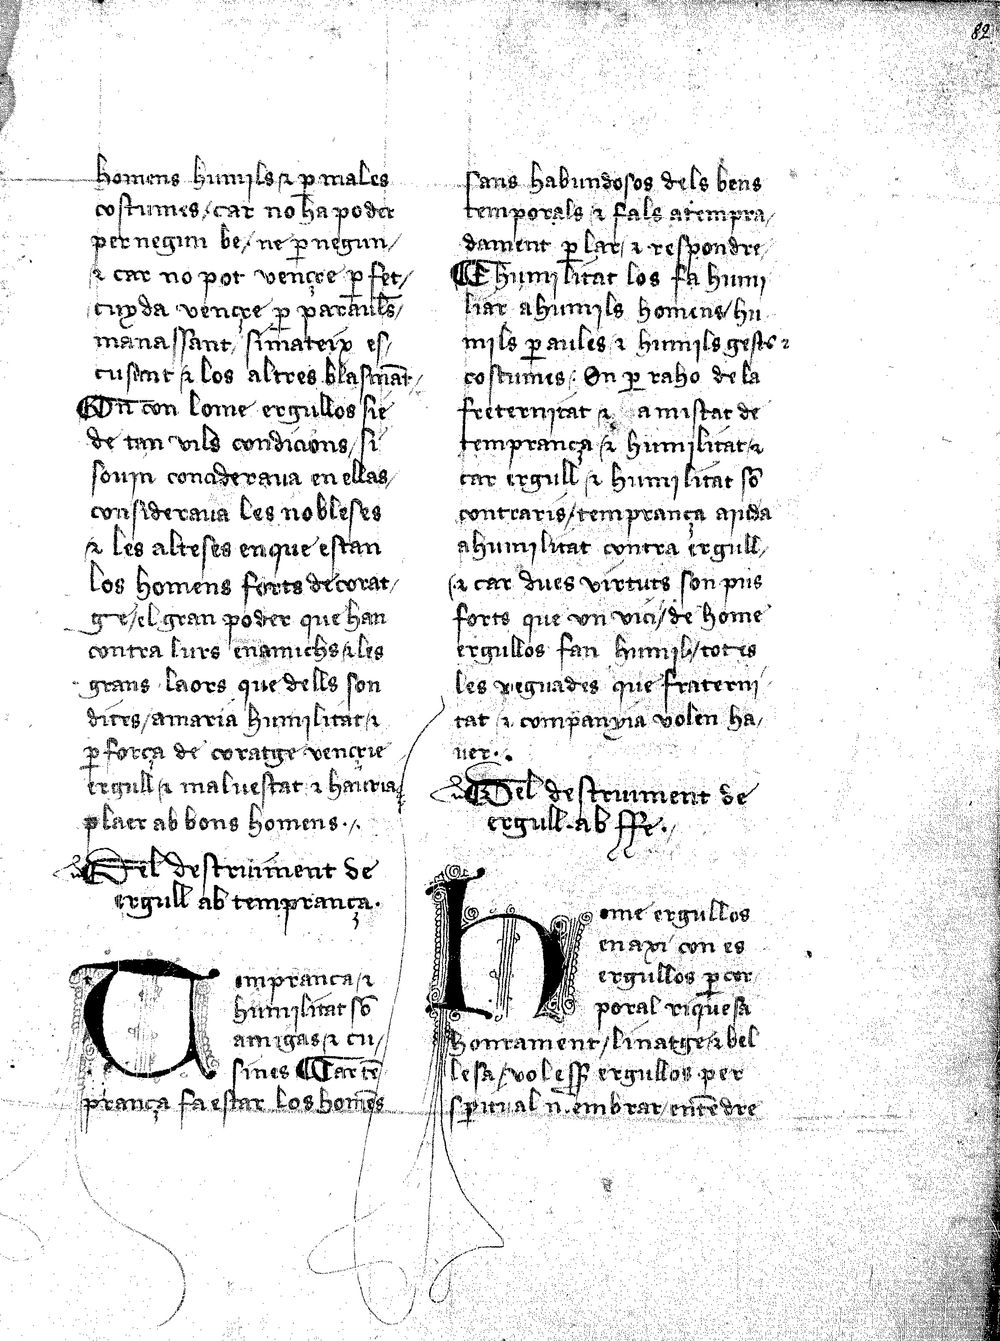 82
homens humils ⁊ ꝑ males
costumes / car no ha poder
per negun be / ne ꝑ negun /
⁊ car no pot vençre ꝑ fet /
cuyda vençre ꝑ paraules /
manassant / si mateix es /
cusant ⁊ los altres blasmāt /
On con lome ergullos sie
de tan vils condicions / si
souin considerava en elles /
considerava les nobleses
⁊ les alteses en que estan
los homens forts de corat /
ge / el gran poder que han
contra lurs enamichs ⁊ les
grans laors que dells son
dites / amaria humilitat ⁊
ꝑ força de coratge vençrie
ergull ⁊ malvestat ⁊ hauria
plaer ab bons homens ./.
Del destruiment de
ergull ab temprança.
Temprança ⁊
humilitat sō
amigas ⁊ cu /
sines Car tē
prança fa estar los homēs
sans habundosos dels bens
temporals ⁊ fals atempra /
dament ꝑlar ⁊ respondre /
E humilitat los fa humi
liar a humils homens / hu
mils ꝑaules ⁊ humils gests ⁊
costumes / On ꝑ raho de la
freternitat ⁊ amistat de
temprança ⁊ humilitat ⁊
car ergull ⁊ humilitat sō
contraris / temprança aiuda
a humilitat contra ergull /
⁊ car dues virtuts son pus
forts que vn vici / de home
ergullos fan humil / totes
les veguades que fraterni
tat ⁊ companyia volen ha /
uer ..
Del destruiment de
ergull ab ffe ./
home ergullos
enaxi con es
ergullos ꝑ cor
poral riquesa
honrament / linatge ⁊ bel
lesa / ergullos per
spūal mēbrar / entēdre